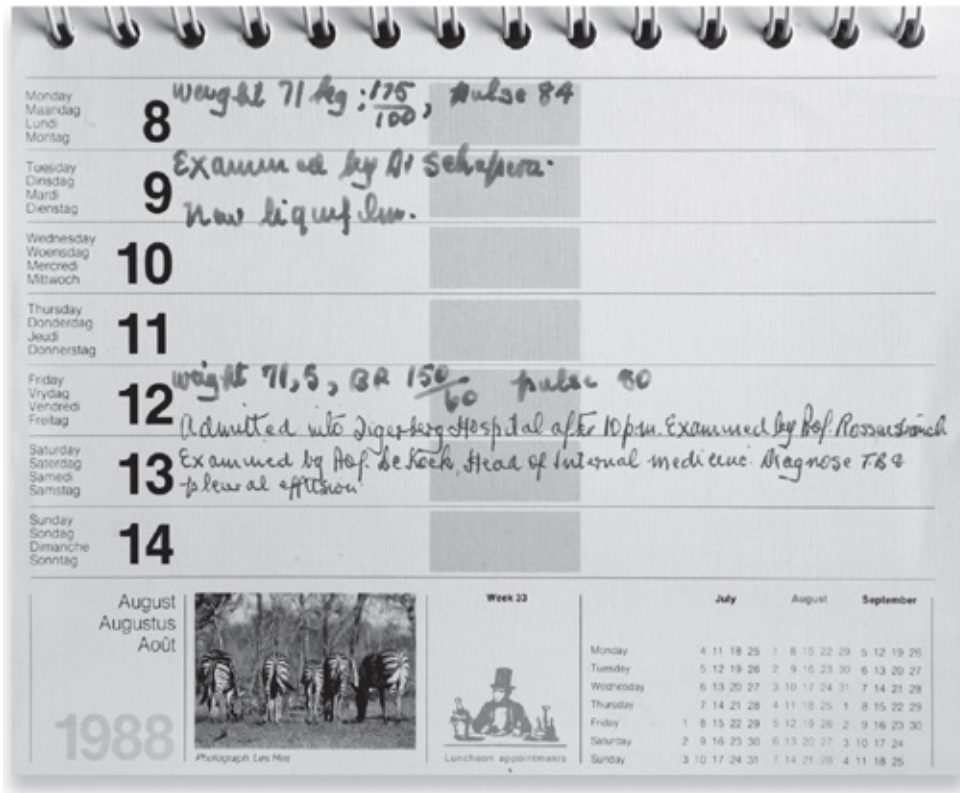 Monday
Maandag
Lundi
Montag
8
weight 71 kg ; 175/100, pulse 84
Tuesday
Dinsdag
Mardi
Dienstag
9
Examined by Dr
Now
Wednesday
Woensdag
Mercredi
Mittwoch
10
Thursday
Donderdag
Jeudi
Donnerstag
11
Friday
Vrydag
Vendredi
Freitag
12
weight 71,5, BP 150/60 pulse 80
Admitted into Tigerberg Hospital after 10 p.m. Examined by Prof.
Saturday
Saterdag
Samedi
Samstag
13
Examined by Prof. De Kock, Head of Internal medicine. Diagnose T.B &
pleural effusion
Sunday
Sondag
Dimanche
Sonntag
14
August
Augustus
Août
1988
Photograph Les Hes
Week 33
Luncheon appointments
July August September
Monday 4 11 18 25 1 8 15 22 29 5 12 19 26
Tuesday 5 12 19 26 2 9 16 23 30 6 13 20 27
Wednesday 6 13 20 27 3 10 17 24 31 7 14 21 28
Thursday 7 14 21 28 4 11 18 25 1 8 15 22 29
Friday 1 8 15 22 29 5 12 19 26 2 9 16 23 30
Saturday 2 9 16 23 30 6 13 20 27 3 10 17 24
Sunday 3 10 17 24 31 7 14 21 28 4 11 18 25